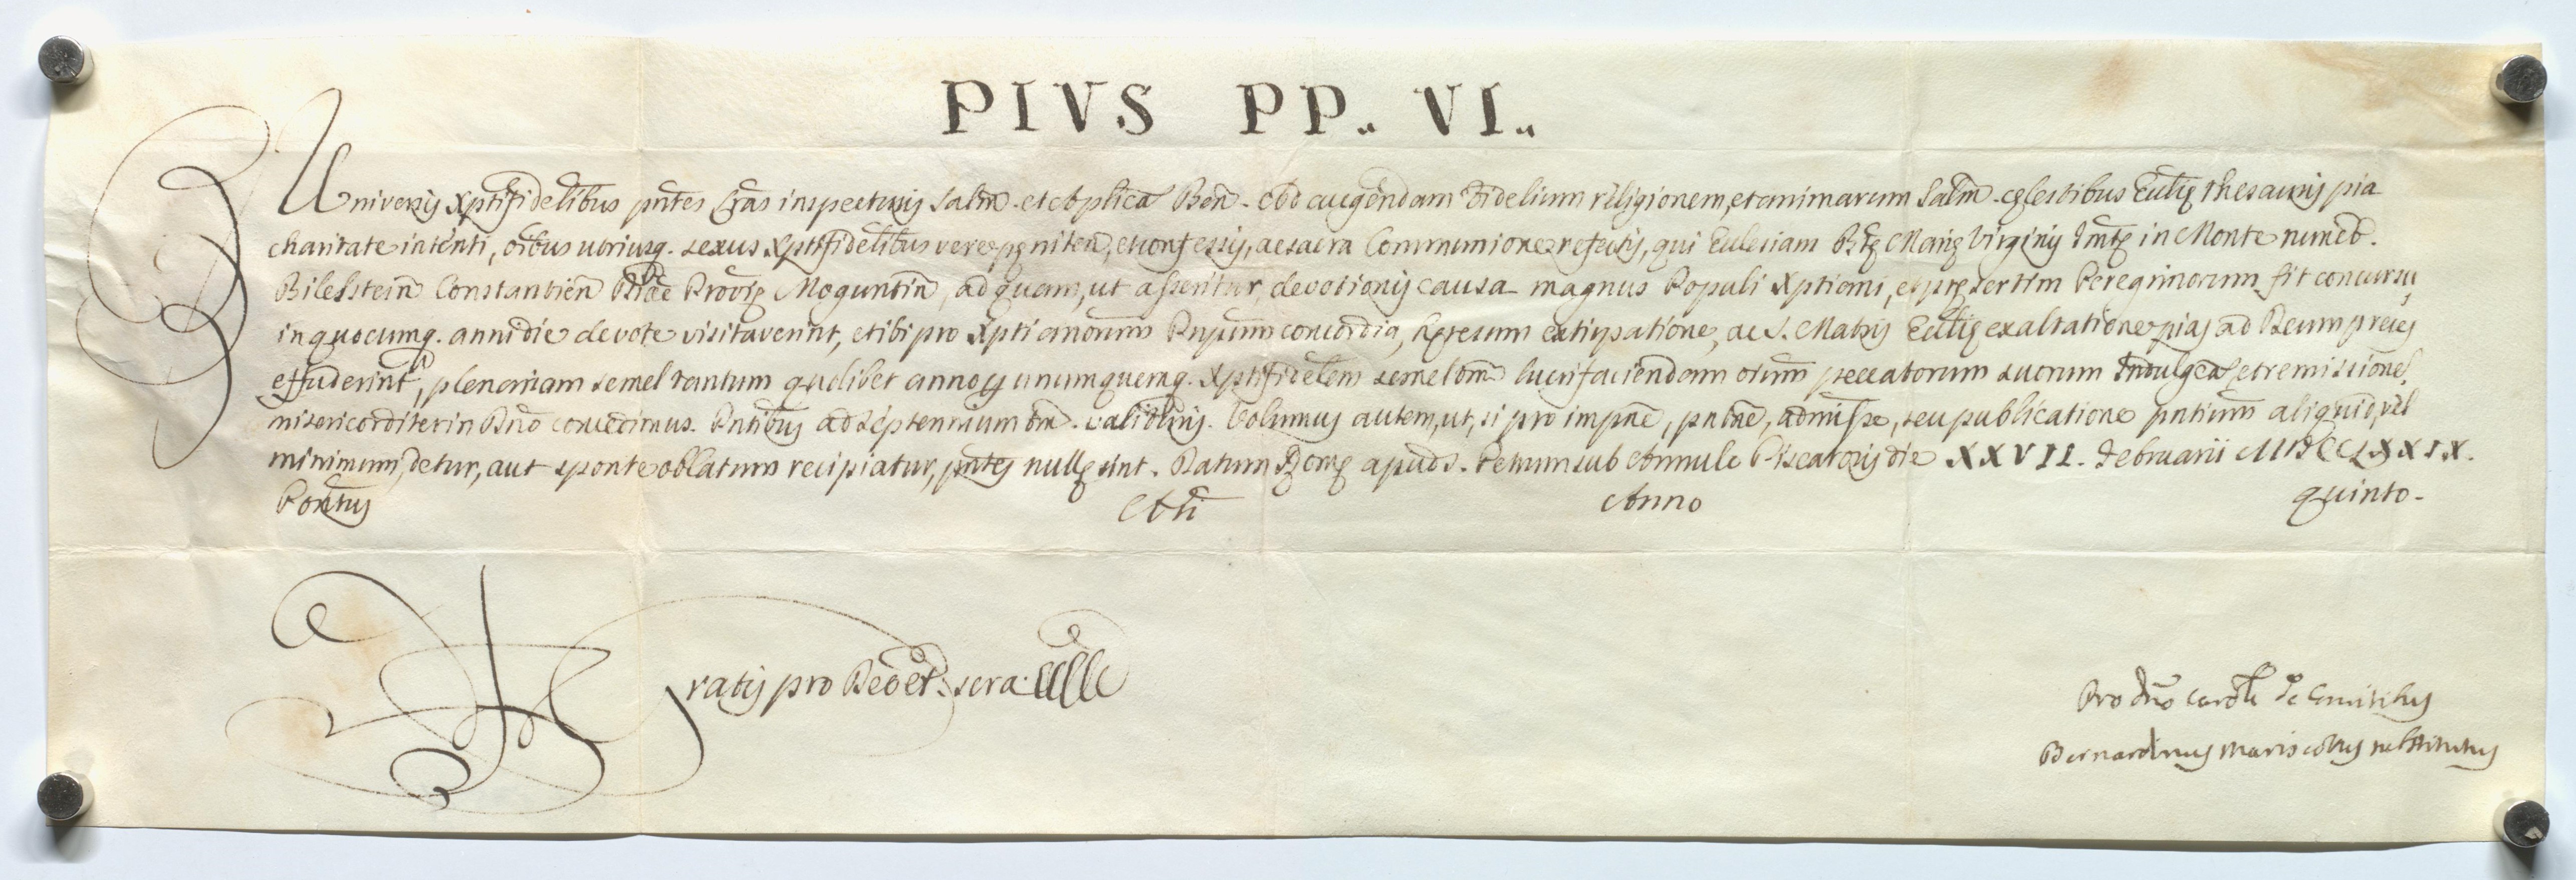 PIVS PP. VI.
Universis Xpti fidelibus pntes Lras inspecturis Salm. et Aplicã Ben. Ad augendam Fidelium religionem, et animarum Salm. cęlestibus Eccliæ thesauris pia
charitate intenti, oibus utriusq. sexus Xptifidelibus vere pęniten, et confessis, ac sacra Communione refectis, qui Ecclesiam Btę Marię Virginis Imtę in Monte nuncd.
Bilesstein Constantien Prõvię Moguntin, ad quam, ut asseritur, devotionis causa magnus Populi Xptiani, et pręsertim Peregrinorum fit concursus,
in quocumq. anni die devote visitaverint, et ibi pro Xptianorum Pnpum concordia, hęresum extirpatione, ac S. Matris Eccliæ exaltatione pias ad Deum preces
effuderint, plenariam semel tantum quolibet anno p unumquemq. Xptifidelem semel dm lucrifaciendam oium peccatorum suorum Indulgeã et remissionē,
misericorditer in Dno concedimus. Pntibus ad Septennium dm. valituris. Volumus autem, ut, si pro impne, pntne, admisne, seu publicatione pntium aliquid, vel
minimum, detur, aut sponte oblatum recipiatur, pntes nullę sint. Datum Romę apud S. Petrum sub Annulo Piscatoris die XXVII. Februarii MDCCLXXIX.
Pontus Nri Anno quinto.
Gratis pro Deo et scra
Pro Dno Cardli de Comitibus
Bernardinus Mariscottus substitutus